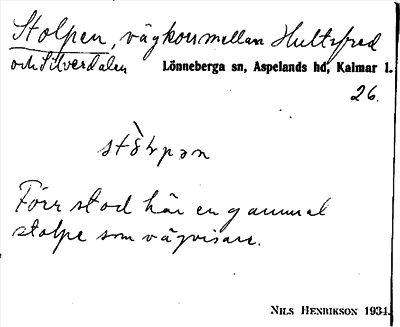 Stolpen, vägkors mellan Hultsfred
och Silverdalen Lönneberga sn, Aspelands hd, Kalmar l.
26.
stòlpən
Förr stod här en gammal
stolpe som vägvisare.
NILS HENRIKSON 1934.